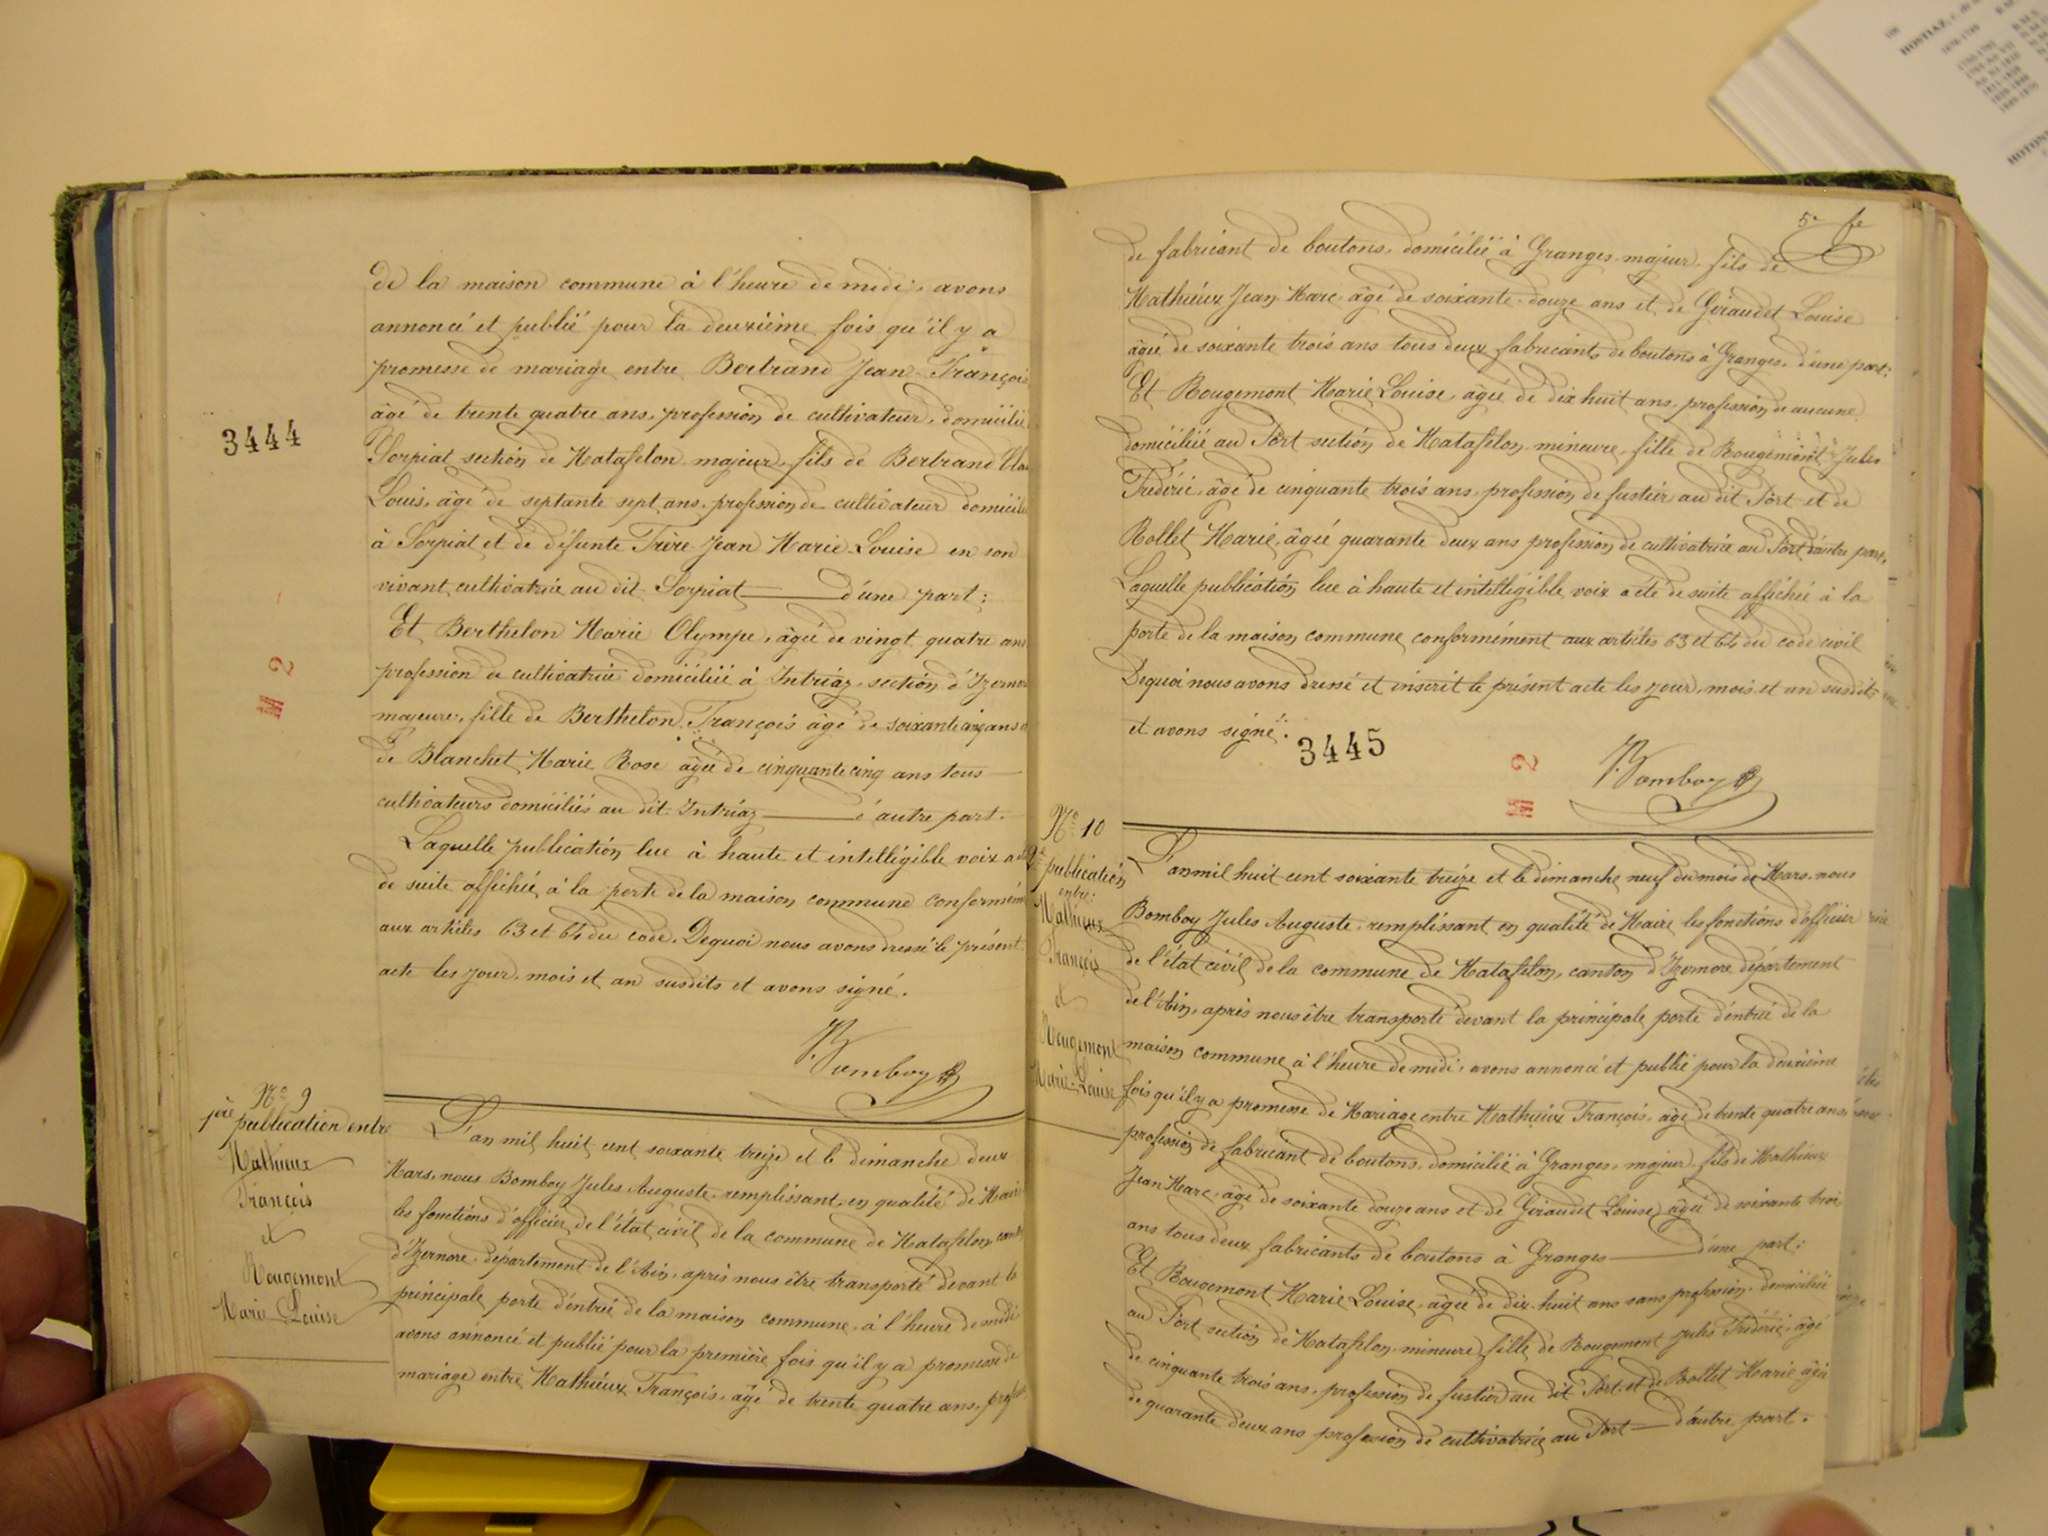 de la maison commune à l'heure de midi, avons
annoncé et publié pour la deuxième fois qu'il y a
promesse de mariage entre Bertrand Jean François
âgé de trente quatre ans, profession de cultivateur, domicilié
Sorpiat section de Matafelon majeur, fils de Bertrand
Louis, âgé de septante sept ans, profession de cultivateur domicilié
à Sorpiat et de défunte Frère Jean Marie Louise en son
vivant cultivatrice au dit Sorpiat d'une part:
Et Berthelon Marie Olympe, âgée de vingt quatre ans
profession de cultivatrice domiciliée à Intriaz, section d'Izernore
majeure, fille de Berthelon François âgé de soixante cinq ans
de Blanchet Marie Rose âgée de cinquante cinq ans tous
cultivateurs domiciliés au dit Intriaz d'autre part.
Laquelle publication lue à haute et intelligible voix a
de suite affichée à la porte de la maison commune conformément
aux articles 63 et 64 du code. De quoi nous avons dressé le présent
acte les jour, mois et an susdits et avons signé.
J. Bomboy
3444
M 2
No 9
1ère publication entre
Mathieux
François
et
Rougemont
Marie Louise
L'an mil huit cent soixante treize et le dimanche deux
Mars, nous Bomboy Jules Auguste, remplissant en qualité de Maire
les fonctions d'officier de l'état civil de la commune de Matafelon, canton
d'Izernore, département de l'Ain, après nous être transporté devant la
principale porte d'entrée de la maison commune, à l'heure de midi
avons annoncé et publié pour la première fois qu'il y a promesse de
mariage entre Mathieux François, âgé de trente quatre ans,
5e
de fabricant de boutons, domicilié à Granges majeur, fils de
Mathieux Jean Marc âgé de soixante douze ans et de Giraudet Louise
âgée de soixante trois ans tous deux fabricants de boutons à Granges, d'une part:
Et Rougemont Marie Louise, âgée de dix huit ans, profession de aucune
domiciliée au Port section de Matafelon, mineure, fille de Rougemont Jules
Fréderic, âgé de cinquante trois ans, profession de fustier au dit Port et de
Rollet Marie, âgée quarante deux ans profession de cultivatrice au Port d'autre part.
Laquelle publication lue à haute et intelligible voix a été de suite affichée à la
porte de la maison commune conformément aux articles 63 et 64 du code civil
De quoi nous avons dressé et inscrit le présent acte les jour, mois et an susdits
et avons signé.
3445
M 2
J. Bomboy
No 10
2e
publication
entre:
Mathieux
François
et
Rougemont
Marie-Louise
L'an mil huit cent soixante treize et le dimanche neuf du mois de Mars, nous
Bomboy Jules Auguste, remplissant en qualité de Maire les fonctions d'officier
de l'état civil de la commune de Matafelon, canton d'Izernore, département
de l'Ain, après nous être transporté devant la principale porte d'entrée de la
maison commune à l'heure de midi, avons annoncé et publié pour la deuxième
fois qu'il y a promesse de Mariage entre Mathieux François, âgé de trente quatre ans
profession de fabricant de boutons, domicilié à Granges, majeur, fils de Mathieux
Jean Marc, âgé de soixante douze ans et de Giraudet Louise, âgée de soixante trois
ans tous deux fabricants de boutons à Granges d'une part:
Et Rougemont Marie Louise, âgée de dix-huit ans sans profession, domiciliée
au Port section de Matafelon, mineure, fille de Rougemont Jules Fréderic, âgé
de cinquante trois ans, profession de fustier au dit Port et de Rollet Marie âgée
de quarante deux ans profession de cultivatrice au Port d'autre part.